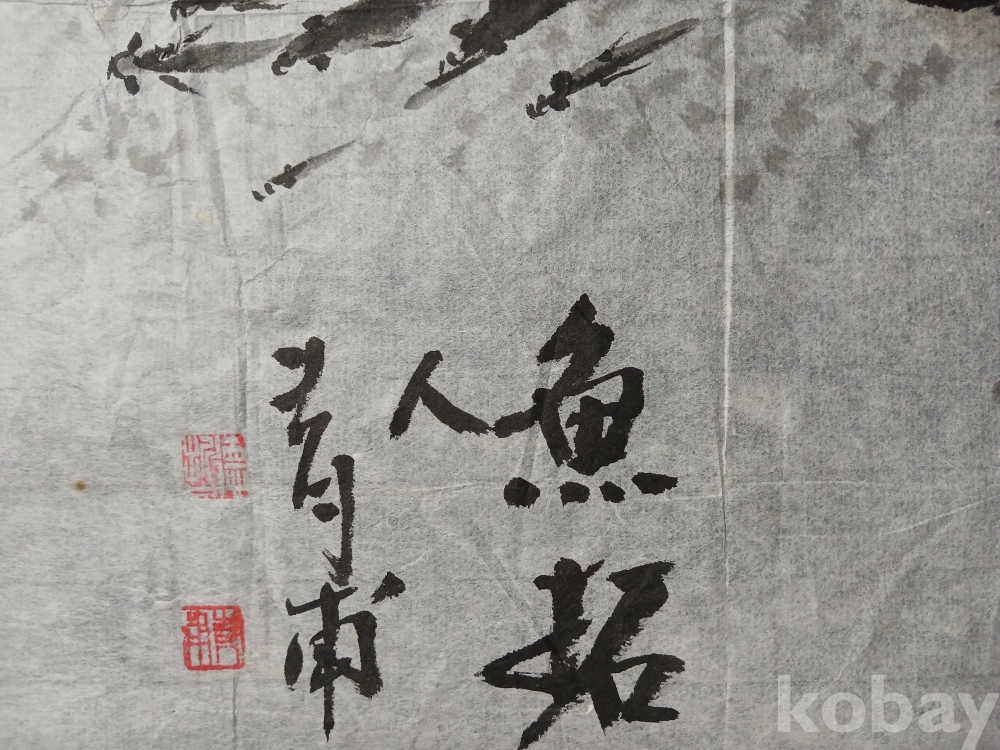 魚拓
人
青甫
kobay